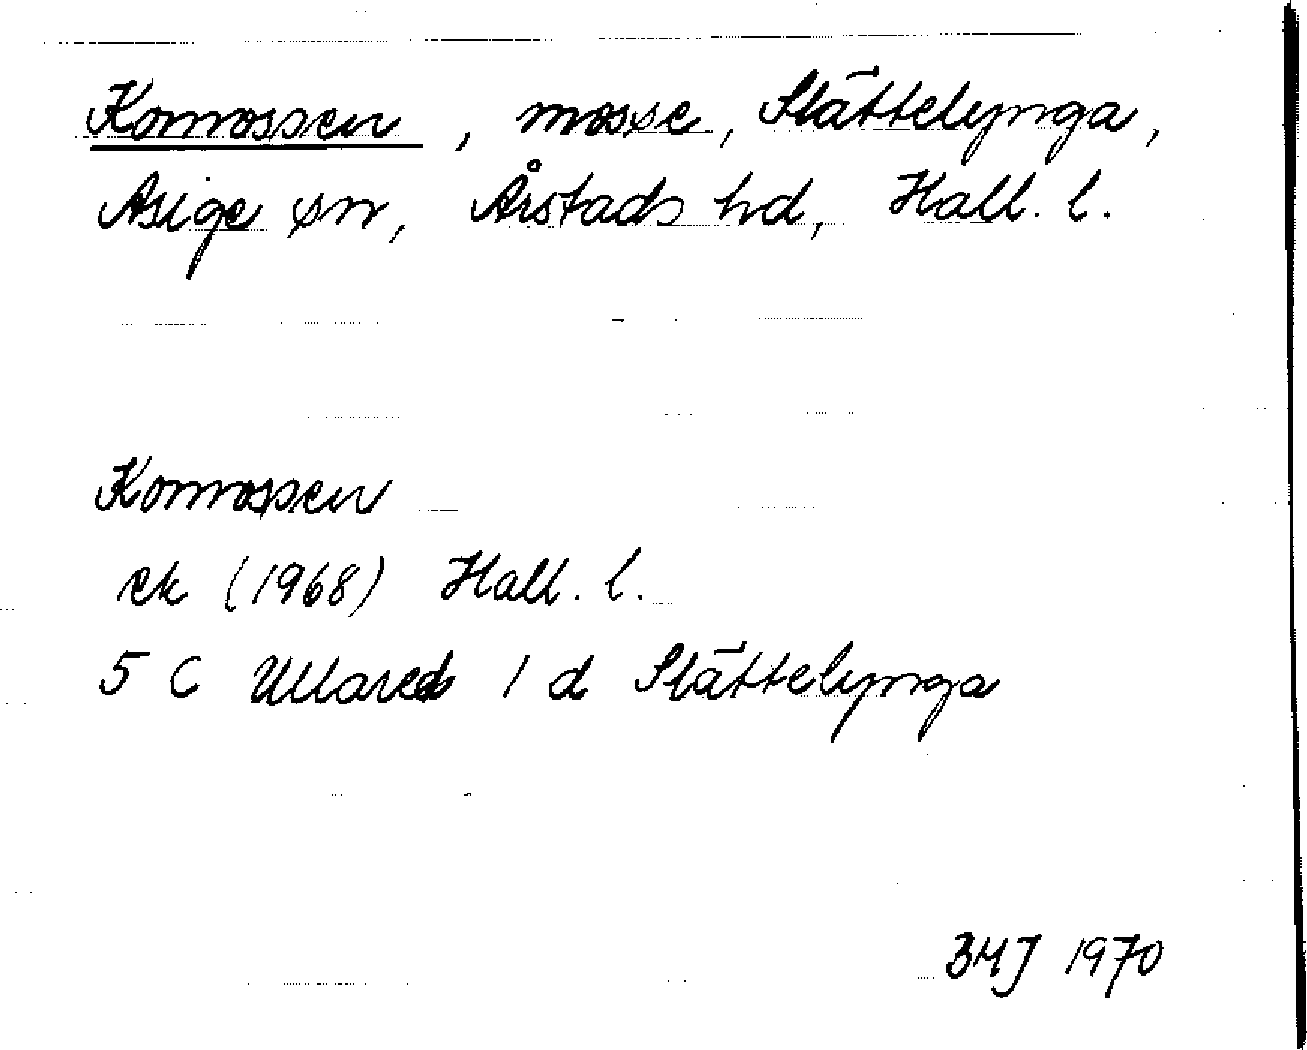 Komossen, mosse, Slättelynga,
Asige sn, Årstads hd, Hall. l.
Komossen
ek (1968) Hall. l.
5 C Ullared 1 d Slättelynga
BMJ 1970